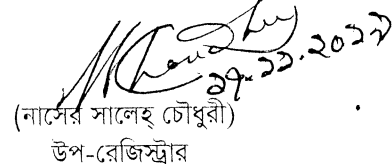 ১৭-১১-২০১৭
(নাসের সালেহ্ চৌধুরী)
উপ-রেজিস্ট্রার